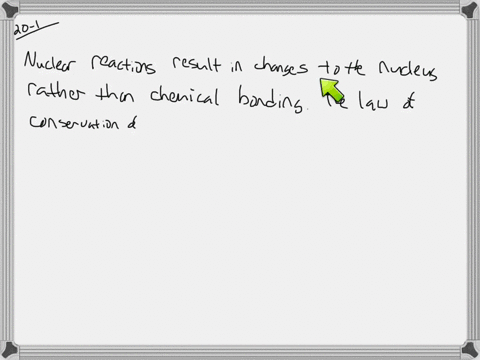 20-1
Nuclear reactions result in changes to the nucleus
rather than chemical bonding. The law of
conservation of